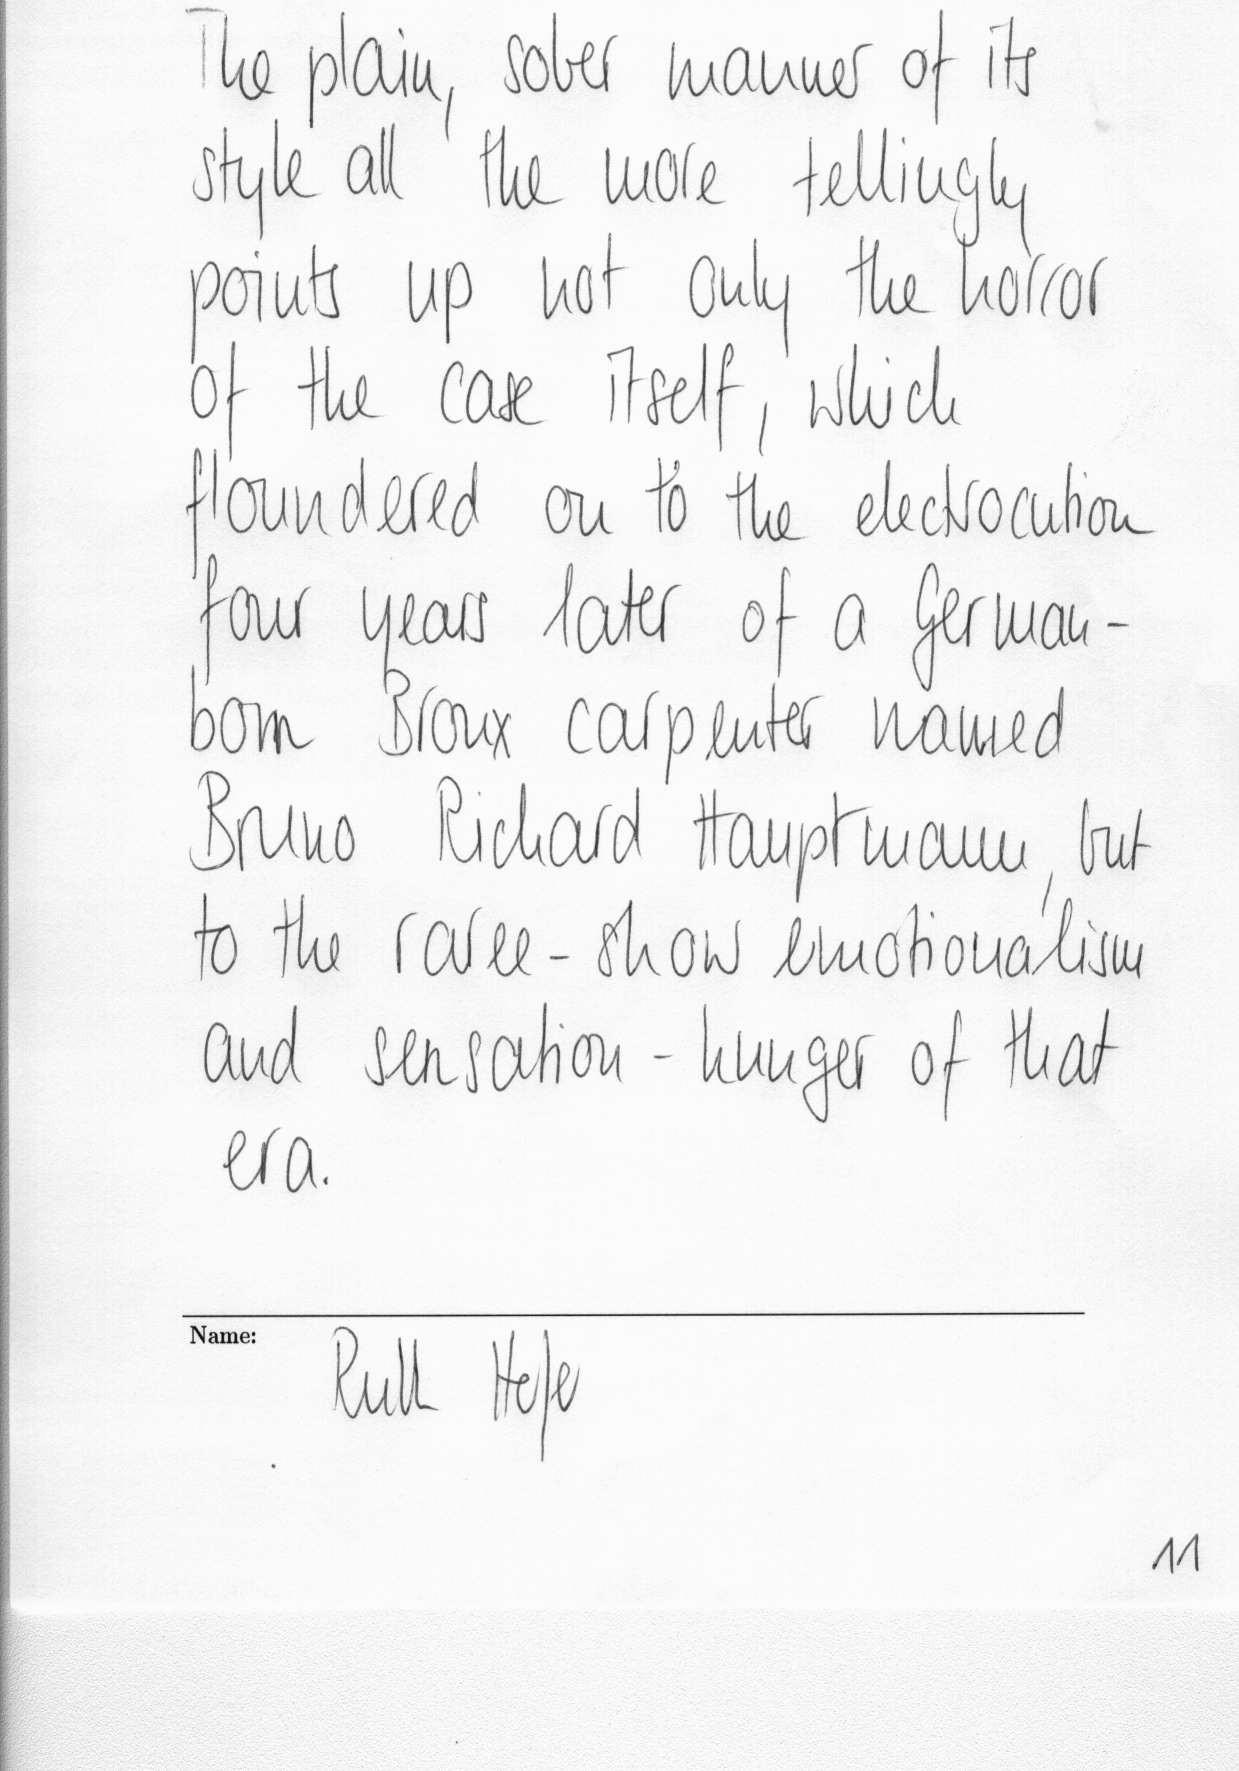 The plain, sober manner of its
style all the more tellingly
points up not only the horror
of the case itself, which
floundered on to the electrocution
four years later of a German-
born Bronx carpenter named
Bruno Richard Hauptmann, but
to the raree-show emotionalism
and sensation-hunger of that
era.
Name:
Ruth
11